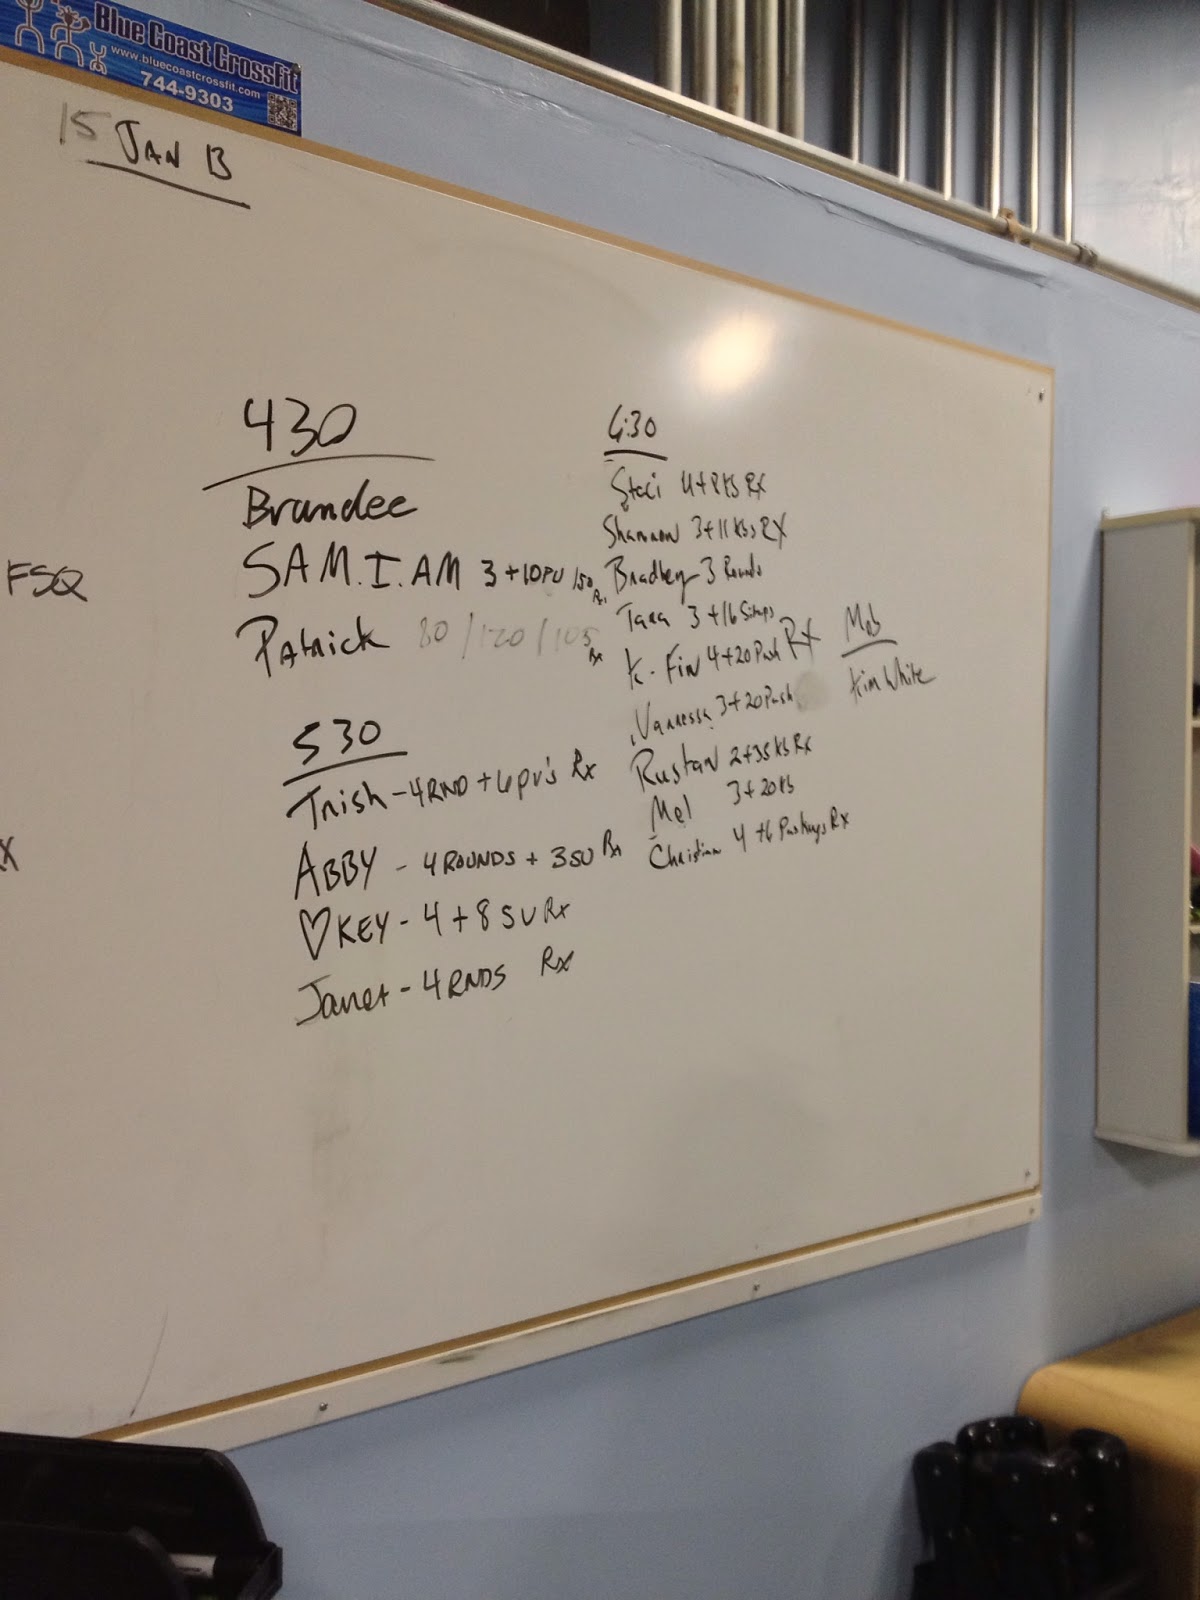 Blue Coast CrossFit
www.bluecoastcrossfit.com
744-9303
15 JAN 13
FSQ
X
430
Brandee
SAM.I.AM 3 + 10PU 150 Rx
Patrick 80/120/105 Rx
530
Trish - 4 RND + 6 PU's Rx
ABBY - 4 ROUNDS + 3 SU Rx
♡KEY - 4 + 8 SU Rx
Janet - 4 RNDS Rx
6:30
Staci 4 + 8 KBS RX
Shannon 3 + 11 KBS RX
Bradley 3 Rounds
Tara 3 + 16 Situps
K. Fin 4 + 20 Push Rx
Vannessa 3 + 20 Push
Rustan 2 + 35 KB Rx
Mel 3 + 20 KB
Christian 4 + 6 Pushups Rx
Kim White